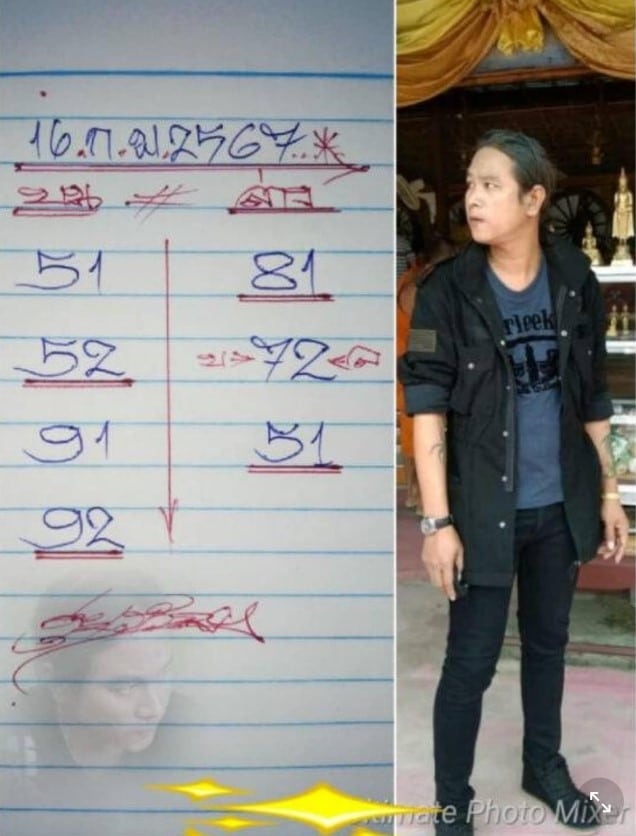 16.ก.พ.2567..*
บน # ล่าง
51 81
52 บ→72←ล
91 51
92
rleek
Ultimate Photo Mixer